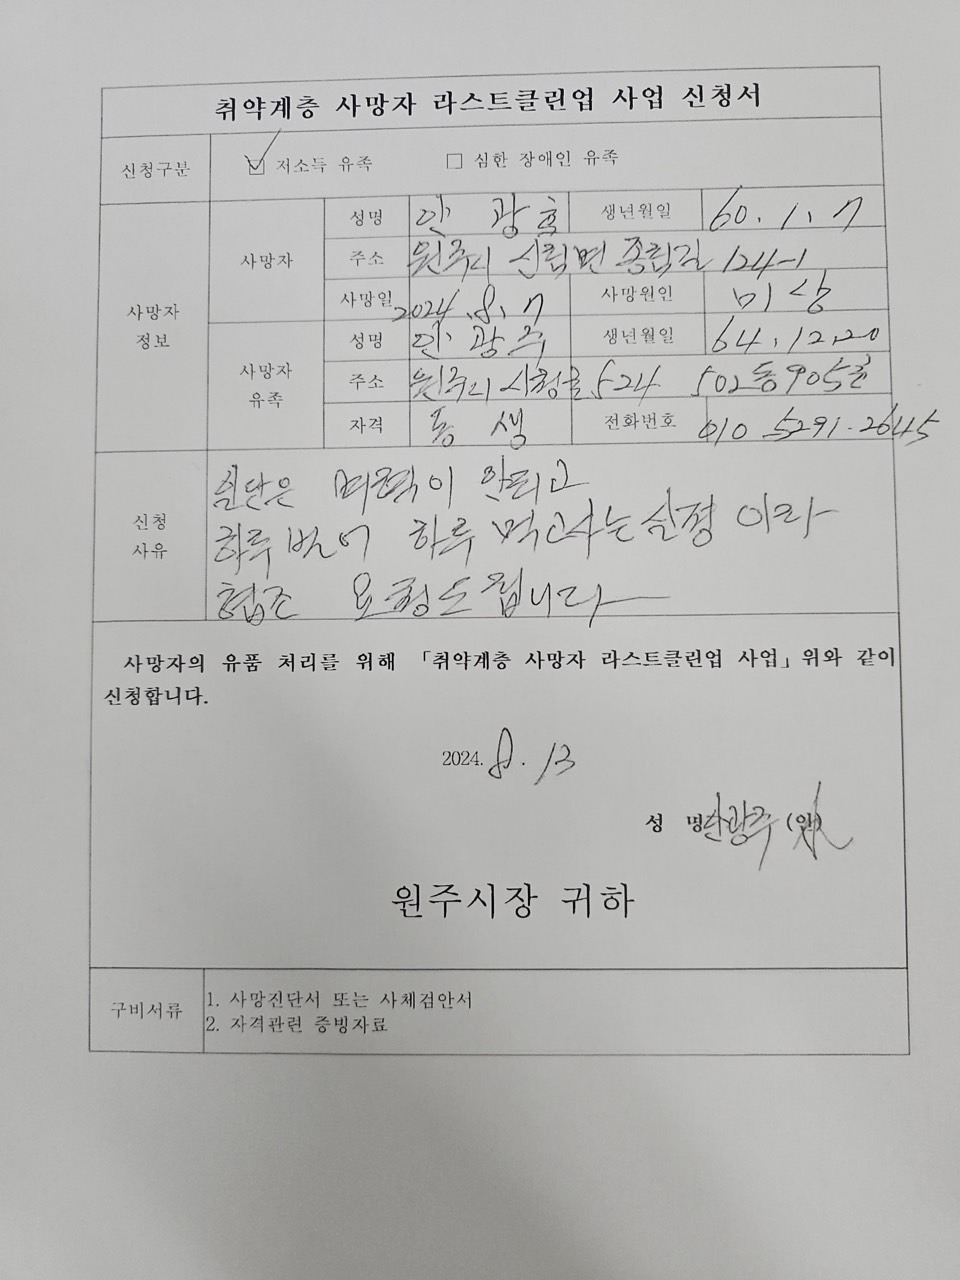 취약계층 사망자 라스트클린업 사업 신청서
신청구분 ☑ 저소득 유족 □ 심한 장애인 유족
사망자 정보
사망자
성명 안 광흠 생년월일 60. 1. 7
주소 원주시 신림면 송림길 124-1
사망일 2024. 8. 7 사망원인 미상
사망자 유족
성명 안 광주 생년월일 64. 12. 20
주소 원주시 시청로 524 502동 905호
자격 동생 전화번호 010 5291-2645
신청 사유
일단은 며력이 안되고
하루 벌어 하루 먹고사는 실정 이라
협조 요청도립니다
사망자의 유품 처리를 위해 「취약계층 사망자 라스트클린업 사업」 위와 같이
신청합니다.
2024. 8. 13
성 명 안광주 (인)
원주시장 귀하
구비서류
1. 사망진단서 또는 사체검안서
2. 자격관련 증빙자료